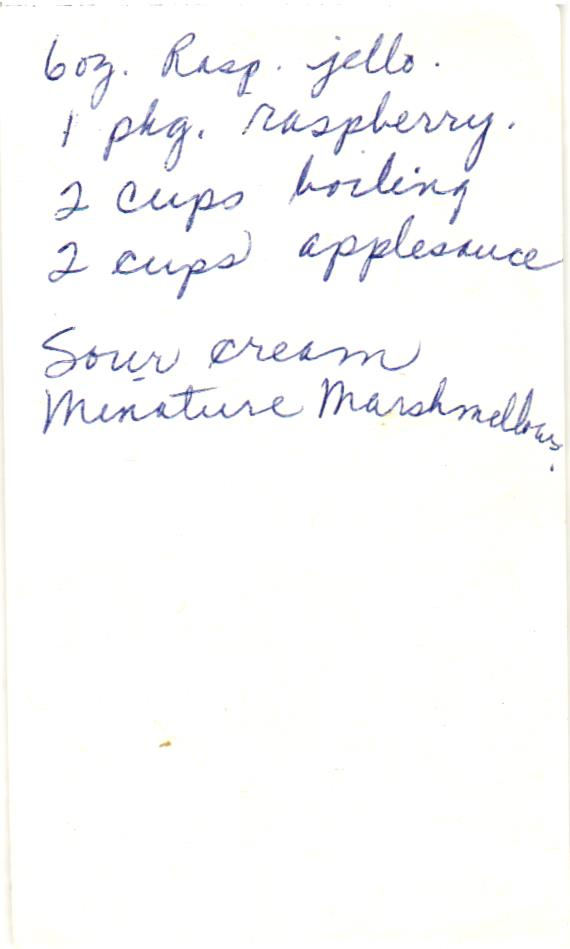 6 oz. Rasp. jello.
1 pkg. raspberry.
2 cups boiling
2 cups applesauce
Sour cream
Minature Marshmellows.